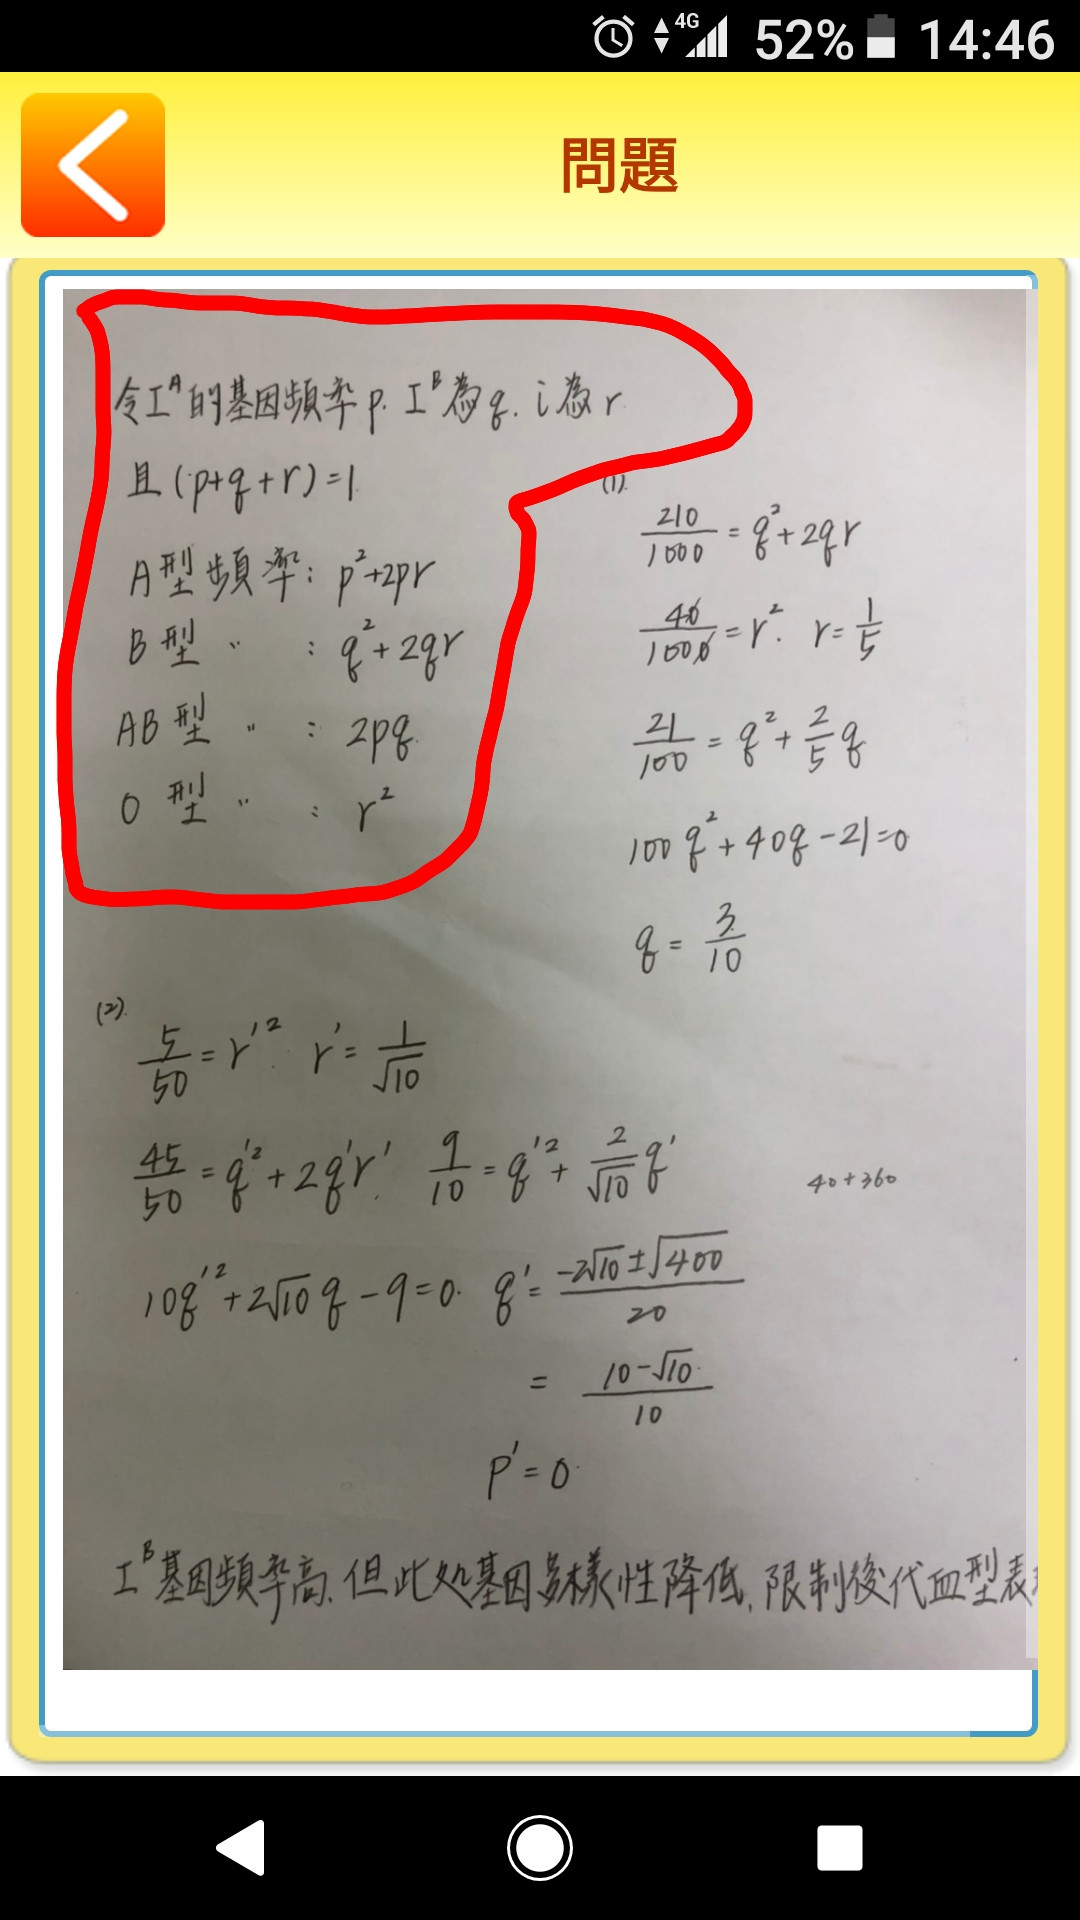 4G 52% 14:46
問題
令I^A的基因頻率p. I^B為q. i為r
且(p+q+r)=1
A型頻率: p²+2pr
B型 〃 : q²+2qr
AB型 〃 : 2pq
O型 〃 : r²
(1).
210/1000 = q²+2qr
40/1000 = r². r=1/5
21/100 = q²+2/5 q
100q²+40q-21=0
q = 3/10
(2).
5/50 = r'². r' = 1/√10
45/50 = q'²+2q'r'. 9/10 = q'²+2/√10 q'
40+360
10q'²+2√10 q-9=0. q' = -2√10±√400/20
= 10-√10/10
p'=0
I^B基因頻率高.但此处基因多樣性降低.限制後代血型表